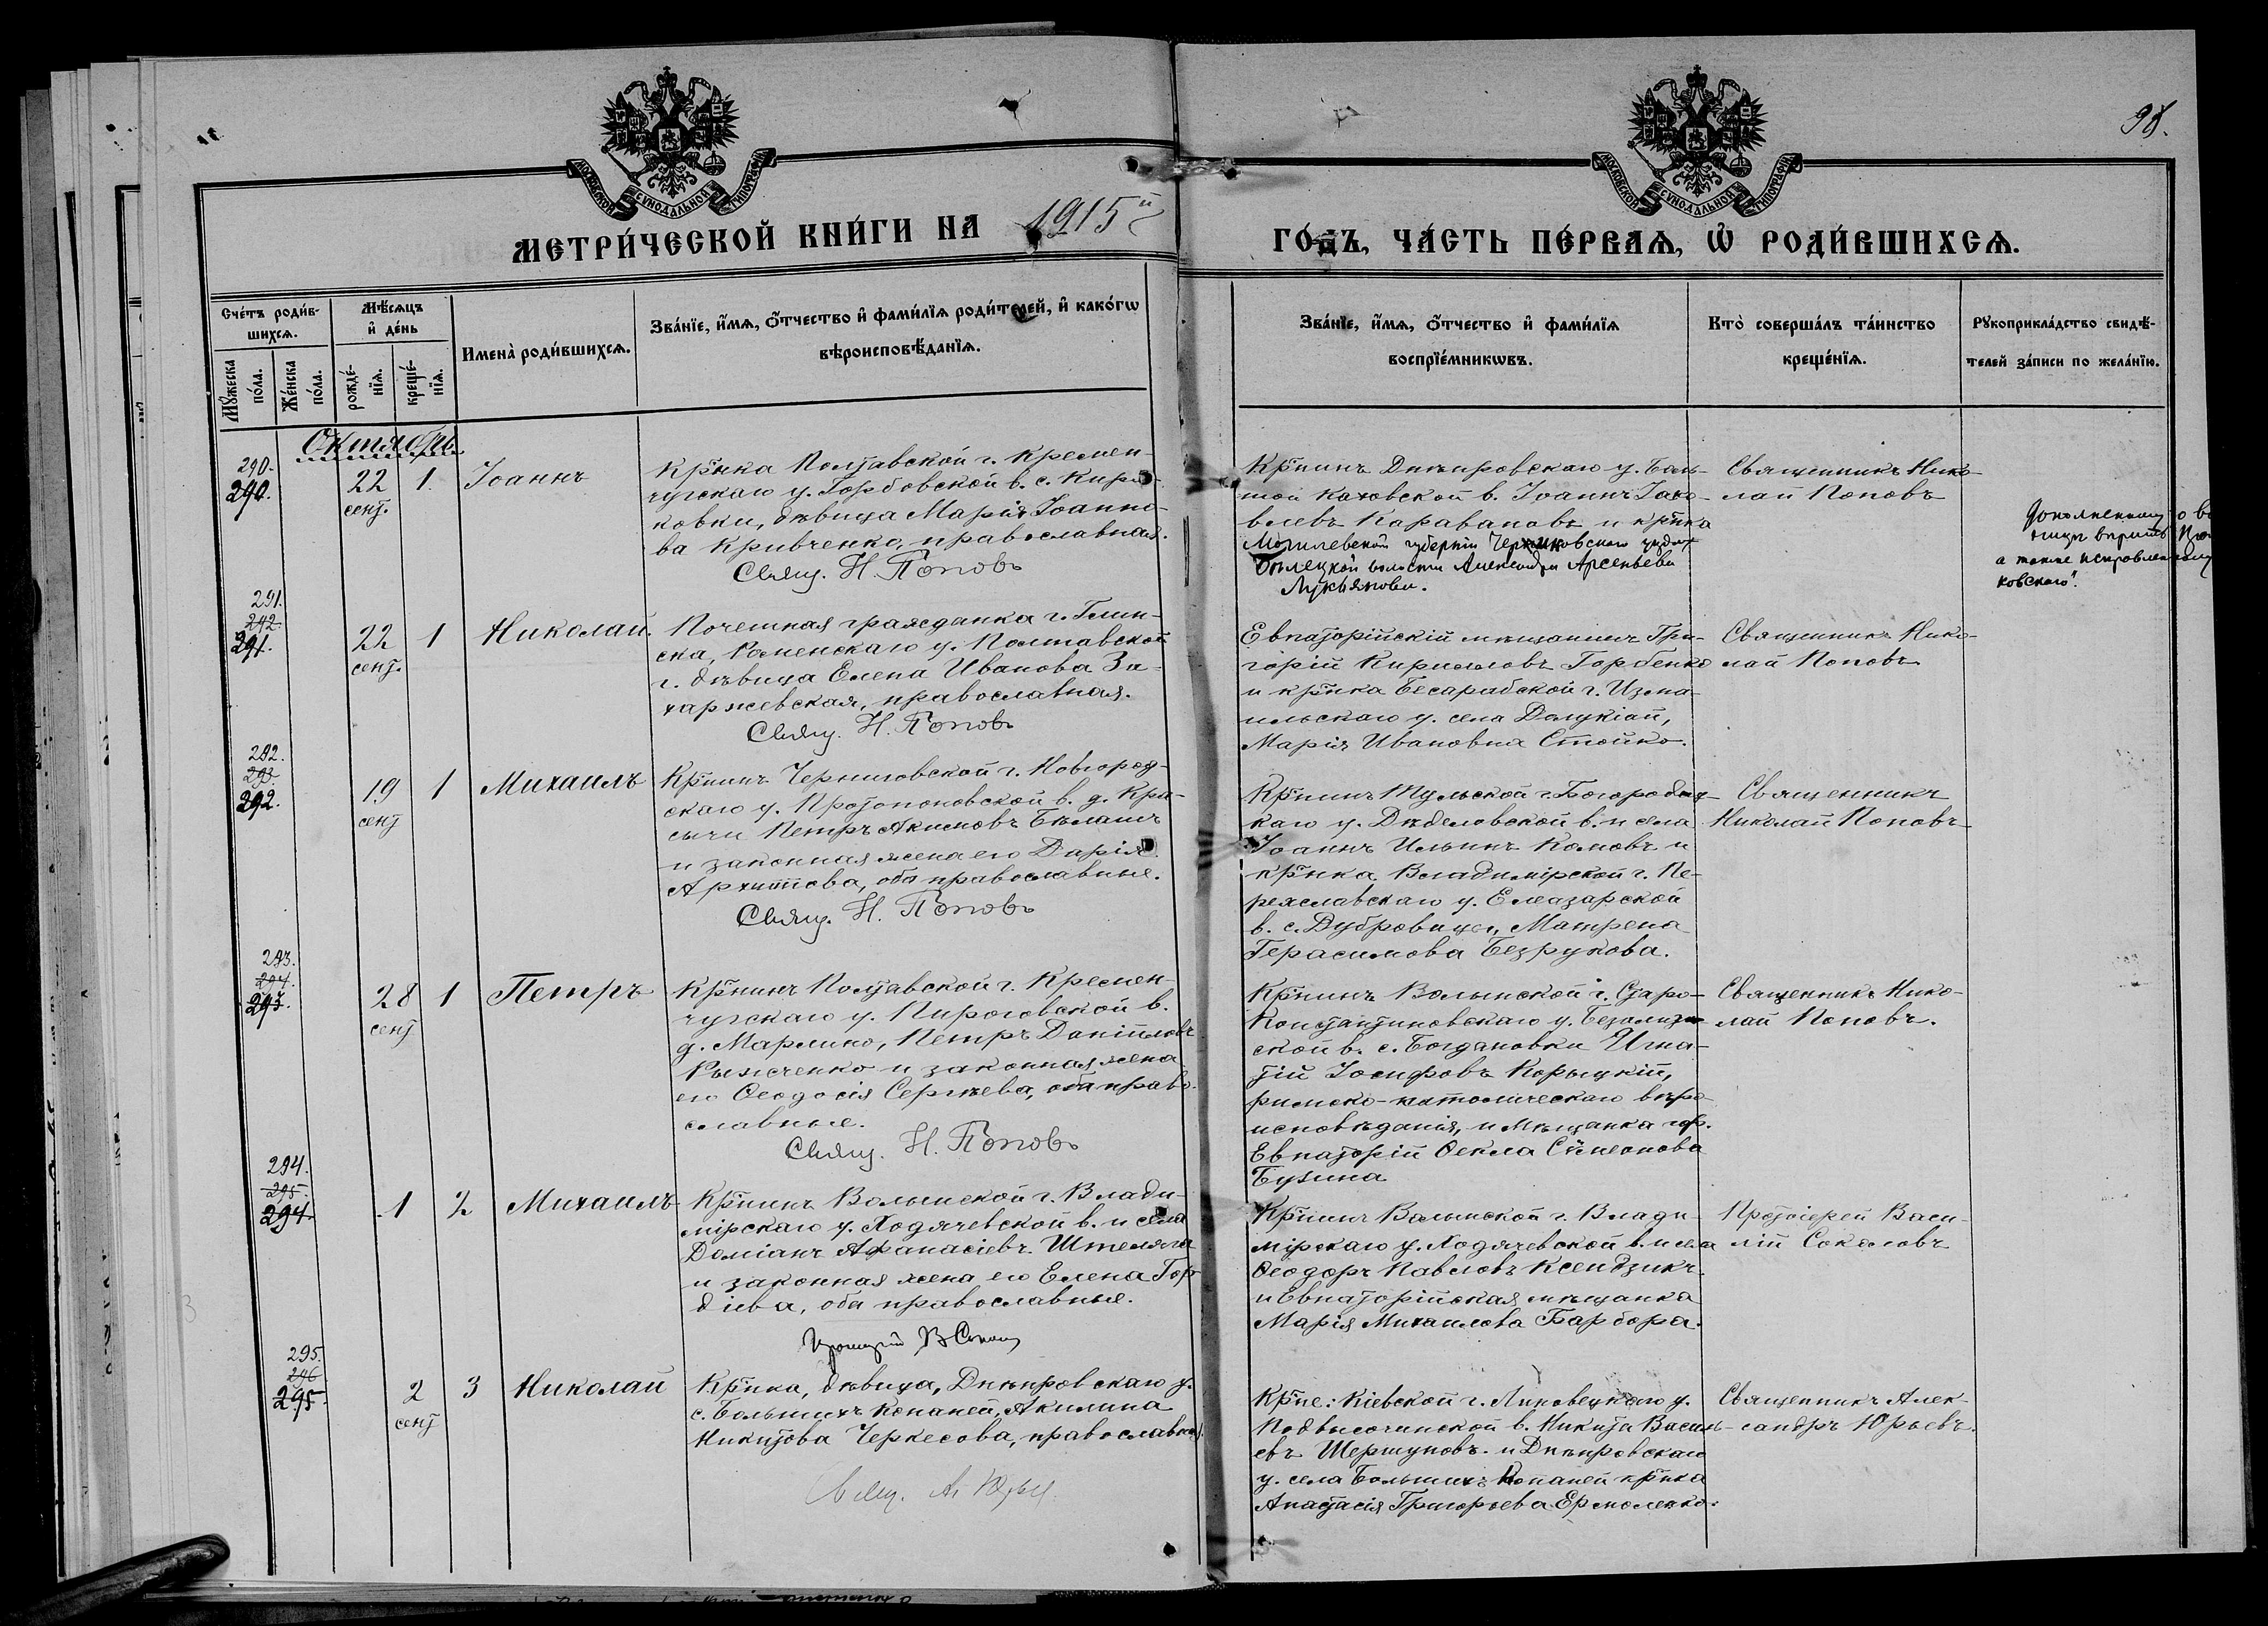 98.
МОСКОВСКОЙ СѴНОДАЛЬНОЙ ТИПОГРАФІИ
МОСКОВСКОЙ СѴНОДАЛЬНОЙ ТИПОГРАФІИ
МЕТРИ́ЧЕСКОЙ КНИ́ГИ НА 1915й
ГО́ДЪ, ЧА́СТЬ ПЕ́РВАѦ, Ѡ҆ РОДИ́ВШИХСѦ.
Сче́тъ роди́в-
шихсѧ.
Мꙋ́жеска
по́ла.
Же́нска
по́ла.
Мѣ́сѧцъ
и҆ де́нь
рожде́-
нїѧ.
креще́-
нїѧ.
Имена̀ роди́вшихсѧ.
Зва́нїе, и҆́мѧ, ѻ҆́тчество и҆ фами́лїѧ роди́телей, и҆ како́гѡ
вѣроисповѣ́данїѧ.
Зва́нїе, и҆́мѧ, ѻ҆́тчество и҆ фами́лїѧ
воспрїе́мникѡвъ.
Кто̀ соверша́лъ та́инство
креще́нїѧ.
Рꙋкоприкла́дство свидѣ́-
телей за́писи по жела́нїю.
Октябрь
290.
290.
22
сент.
1.
Іоаннъ
Кр̄нка Полтавской г. Кремен-
чугскаго у. Горбовской в. с. Кири-
ковки, дѣвица Марія Іоанно-
ва Кривченко, православная.
Свящ. Н. Поповъ
Кр̄нинъ Днѣпровскаго у. Боль-
шой Каховской в. Іоаннъ Іако-
влевъ Караваповъ и кр̄нка
Могилевской губерніи Чериковскаго уезда
Бѣлецкой волости Александра Арсеньева
Лукьянова.
Священникъ Нико-
лай Поповъ
Дополненному
а также исправленному
ковскаго".
291.
242.
291.
22
сент.
1
Николай.
Почетная гражданка г. Глин-
ска, Роменскаго у. Полтавской
г. дѣвица Елена Иванова За-
харжевская, православная.
Свящ. Н. Поповъ
Евпаторійскій мѣщанинъ Гри-
горій Кирилловъ Горбенко
и кр̄нка Бесарабской г. Изма-
ильскаго у. села Долукіой,
Марія Ивановна Стойко.
Священникъ Нико-
лай Поповъ
292.
293
292.
19
сент
1
Михаилъ
Кр̄нинъ Черниговской г. Новгород-
скаго у. Протопоповской в. д. Кри-
сычи Петръ Акимовъ Бѣлашъ
и законная жена его Дарія
Архитова, оба православные.
Свящ. Н. Поповъ
Кр̄нинъ Тульской г. Богородиц-
каго у. Дѣделовской в. и села
Іоаннъ Ильинъ Комовъ и
кр̄нка Владимірской г. Пе-
реяславскаго у. Елеазарской
в. с. Дубровицы, Матрена
Герасимова Безрукова.
Священникъ
Николай Поповъ
293.
294.
293.
28
сент
1
Петръ
Кр̄нинъ Полтавской г. Кремен-
чугскаго у. Пироговской в.
д. Марлино, Петръ Даніиловъ
Рыжченко и законная жена
его Ѳеодосія Сергѣева, оба право-
славные.
Свящ. Н. Поповъ
Кр̄нинъ Волынской г. Старо-
Константиновскаго у.
ской в. с. Богдановки Игна-
тій Іосифовъ Корыцкій,
римско-католическаго вѣро-
исповѣданія, и мѣщанка гор.
Евпаторіи Ѳекла Сѵмеонова
Бузина
Священникъ Нико-
лай Поповъ.
294.
295.
294.
1
2
Михаилъ
Кр̄нинъ Волынской г. Влади-
мірскаго у. Ходячевской в. и села
Доміанъ Аѳанасіевъ Штеляга
и законная жена его Елена Гор-
діева, оба православные.
Кр̄нинъ Волынской г. Влади-
мірскаго у. Ходячевской в. и села
Ѳеодоръ Павловъ Ксендзикъ
и Евпаторійская мѣщанка
Марія Михаилова Барбора.
Протоіерей Васи-
лій Соколовъ
295.
296
295.
2
сент
3
Николай
Кр̄нка, дѣвица, Днѣпровскаго у.
с. Большихъ Копаней, Акилина
Никитова Черкесова, православная.
Свящ. Ал. Юрьев
Кр̄не: Кіевской г. Липовецкаго у.
Подвысочинской в. Никита Василь-
евъ Шершуновъ и Днѣпровскаго
у. села Большихъ Копаней кр̄нка
Анастасія Григорьева Ермоленко.
Священникъ Алек-
сандръ Юрьевъ.